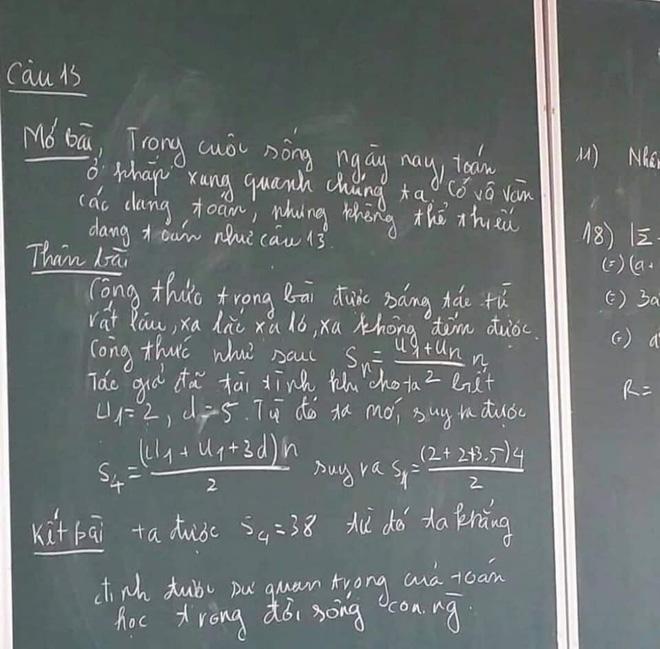 Câu 13
Mở bài, Trong cuộc sống ngày nay, toán
ở khắp xung quanh chúng ta. Có vô vàn
các dạng toán, nhưng không thể thiếu
dạng toán như câu 13.
Thân bài
Công thức trong bài được sáng tác từ
rất lâu, xa lắc xa ló, xa không đếm được.
Công thức như sau Sn = (u1+un)/2 n
Tác giả đã tài tình khi cho ta biết
u1=2, d=5. Từ đó ta mò, suy ra được
S4 = (u1+u1+3d)n/2 suy ra S4 = (2+2+3.5)4/2
Kết bài ta được S4=38 từ đó ta khẳng
định được sự quan trọng của toán
học trong đời sống con ng
11)
18)
(=) (a
(=) 3a
(=)
R=